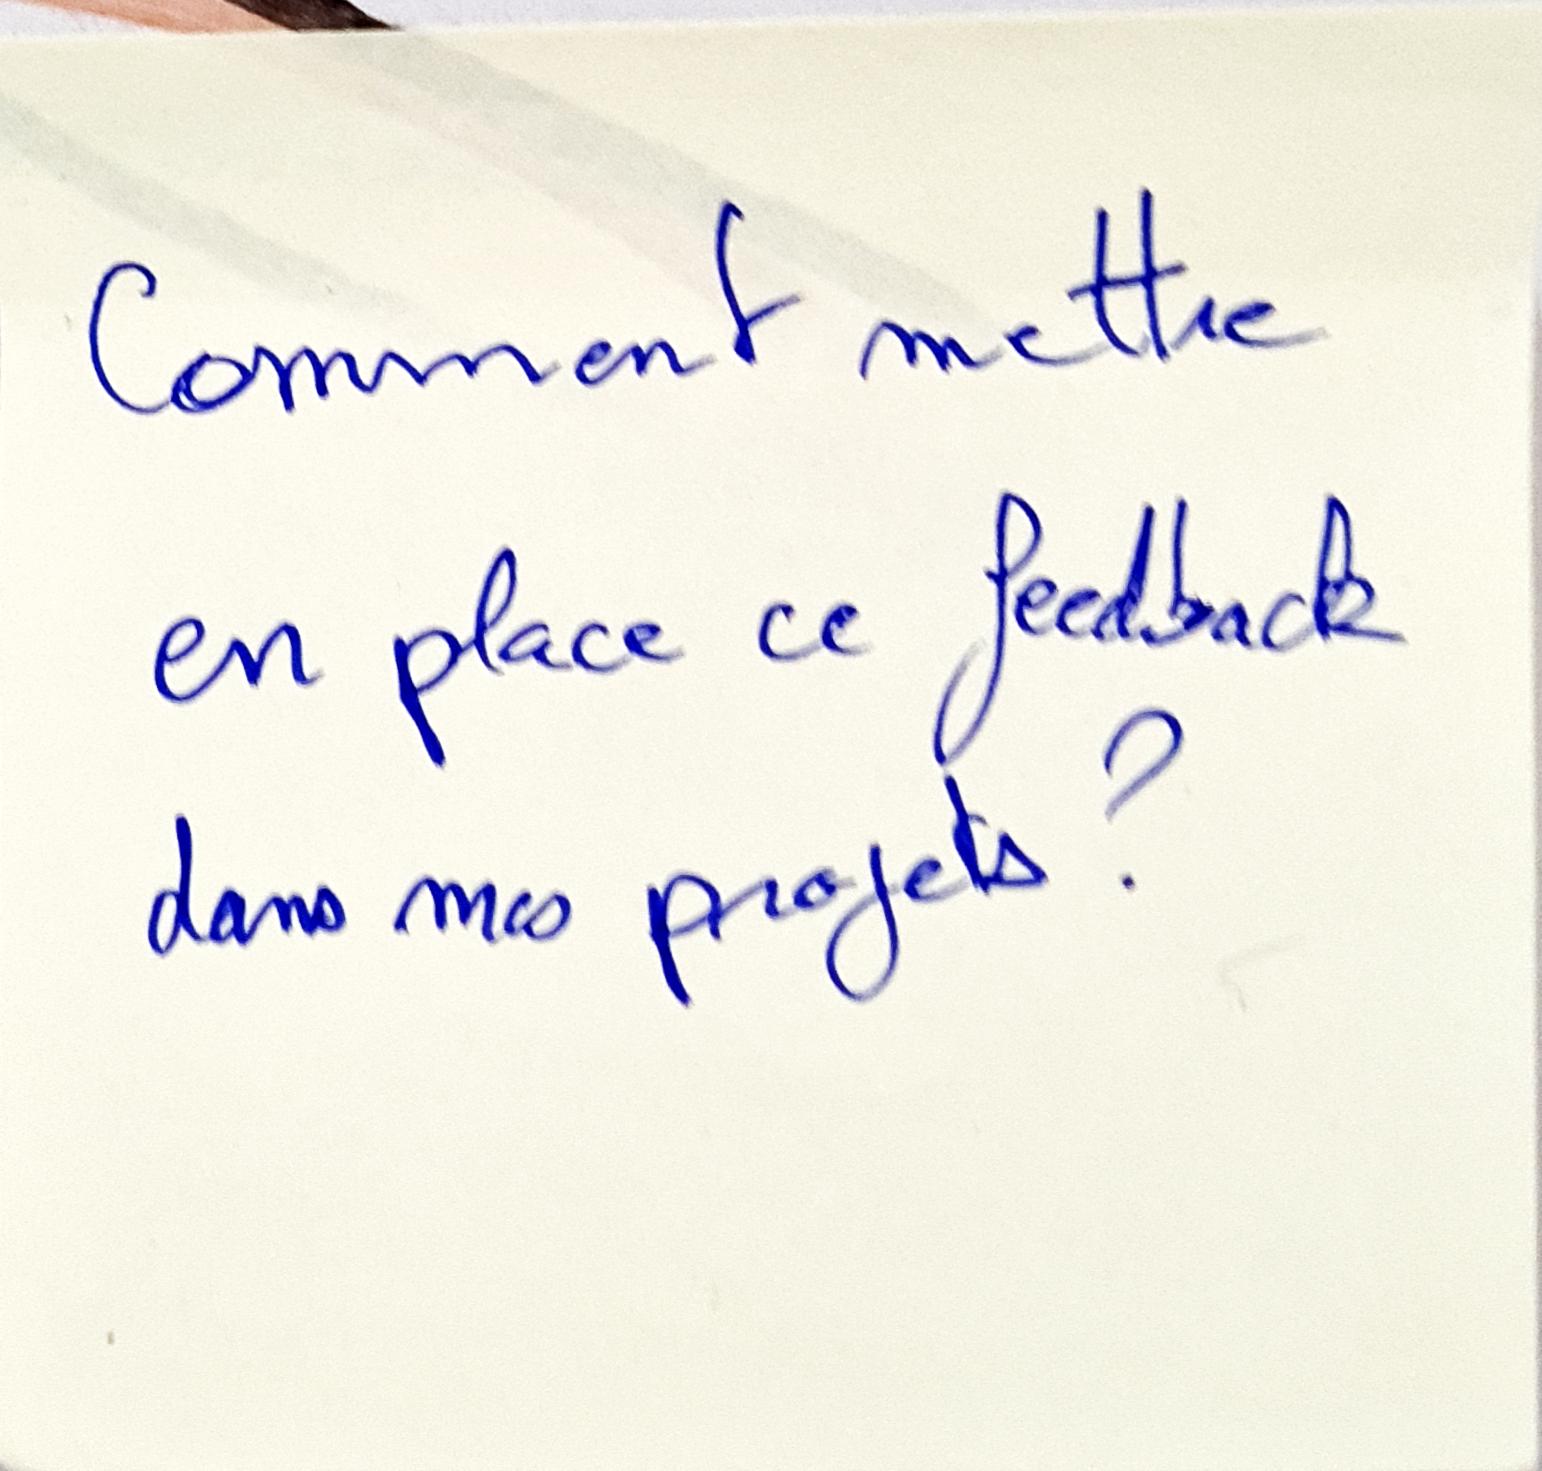 Comment mettre
en place ce feedback
dans mes projets ?